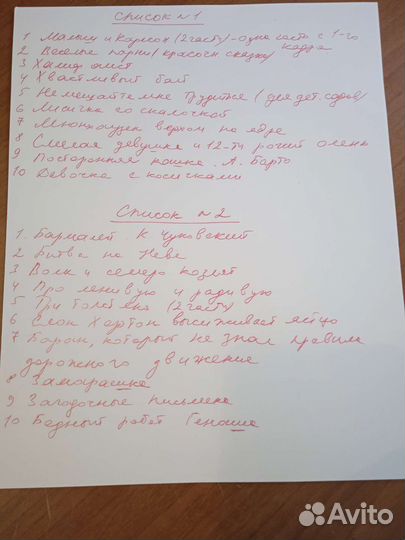 Список №1
1 Малыш и Карлсон (2 части) - одна часть с 1-го
кадра
2 Веселые парни (красочн сказка)
3 Халиф аист
4 Хвастливый бай
5 Не мешайте мне трудиться (для дет. садов)
6 Лисичка со скалочкой
7 Мюнхаузен верхом на ядре
8 Смелая девушка и 12-ти рогий олень
9 Посторонняя кошка. А. Барто
10 Девочка с косичками
Список №2
1. Бармалей. К Чуковский
2 Битва на Неве
3 Волк и семеро козлят
4 Про ленивую и радивую
5 Три толстяка (2 части)
6 Слон Хортон высиживает яйцо
7 Баран, который не знал правил
дорожного движения
8 Замарашка
9 Загадочные письмена
10 Бедный робот Геноша
Avito